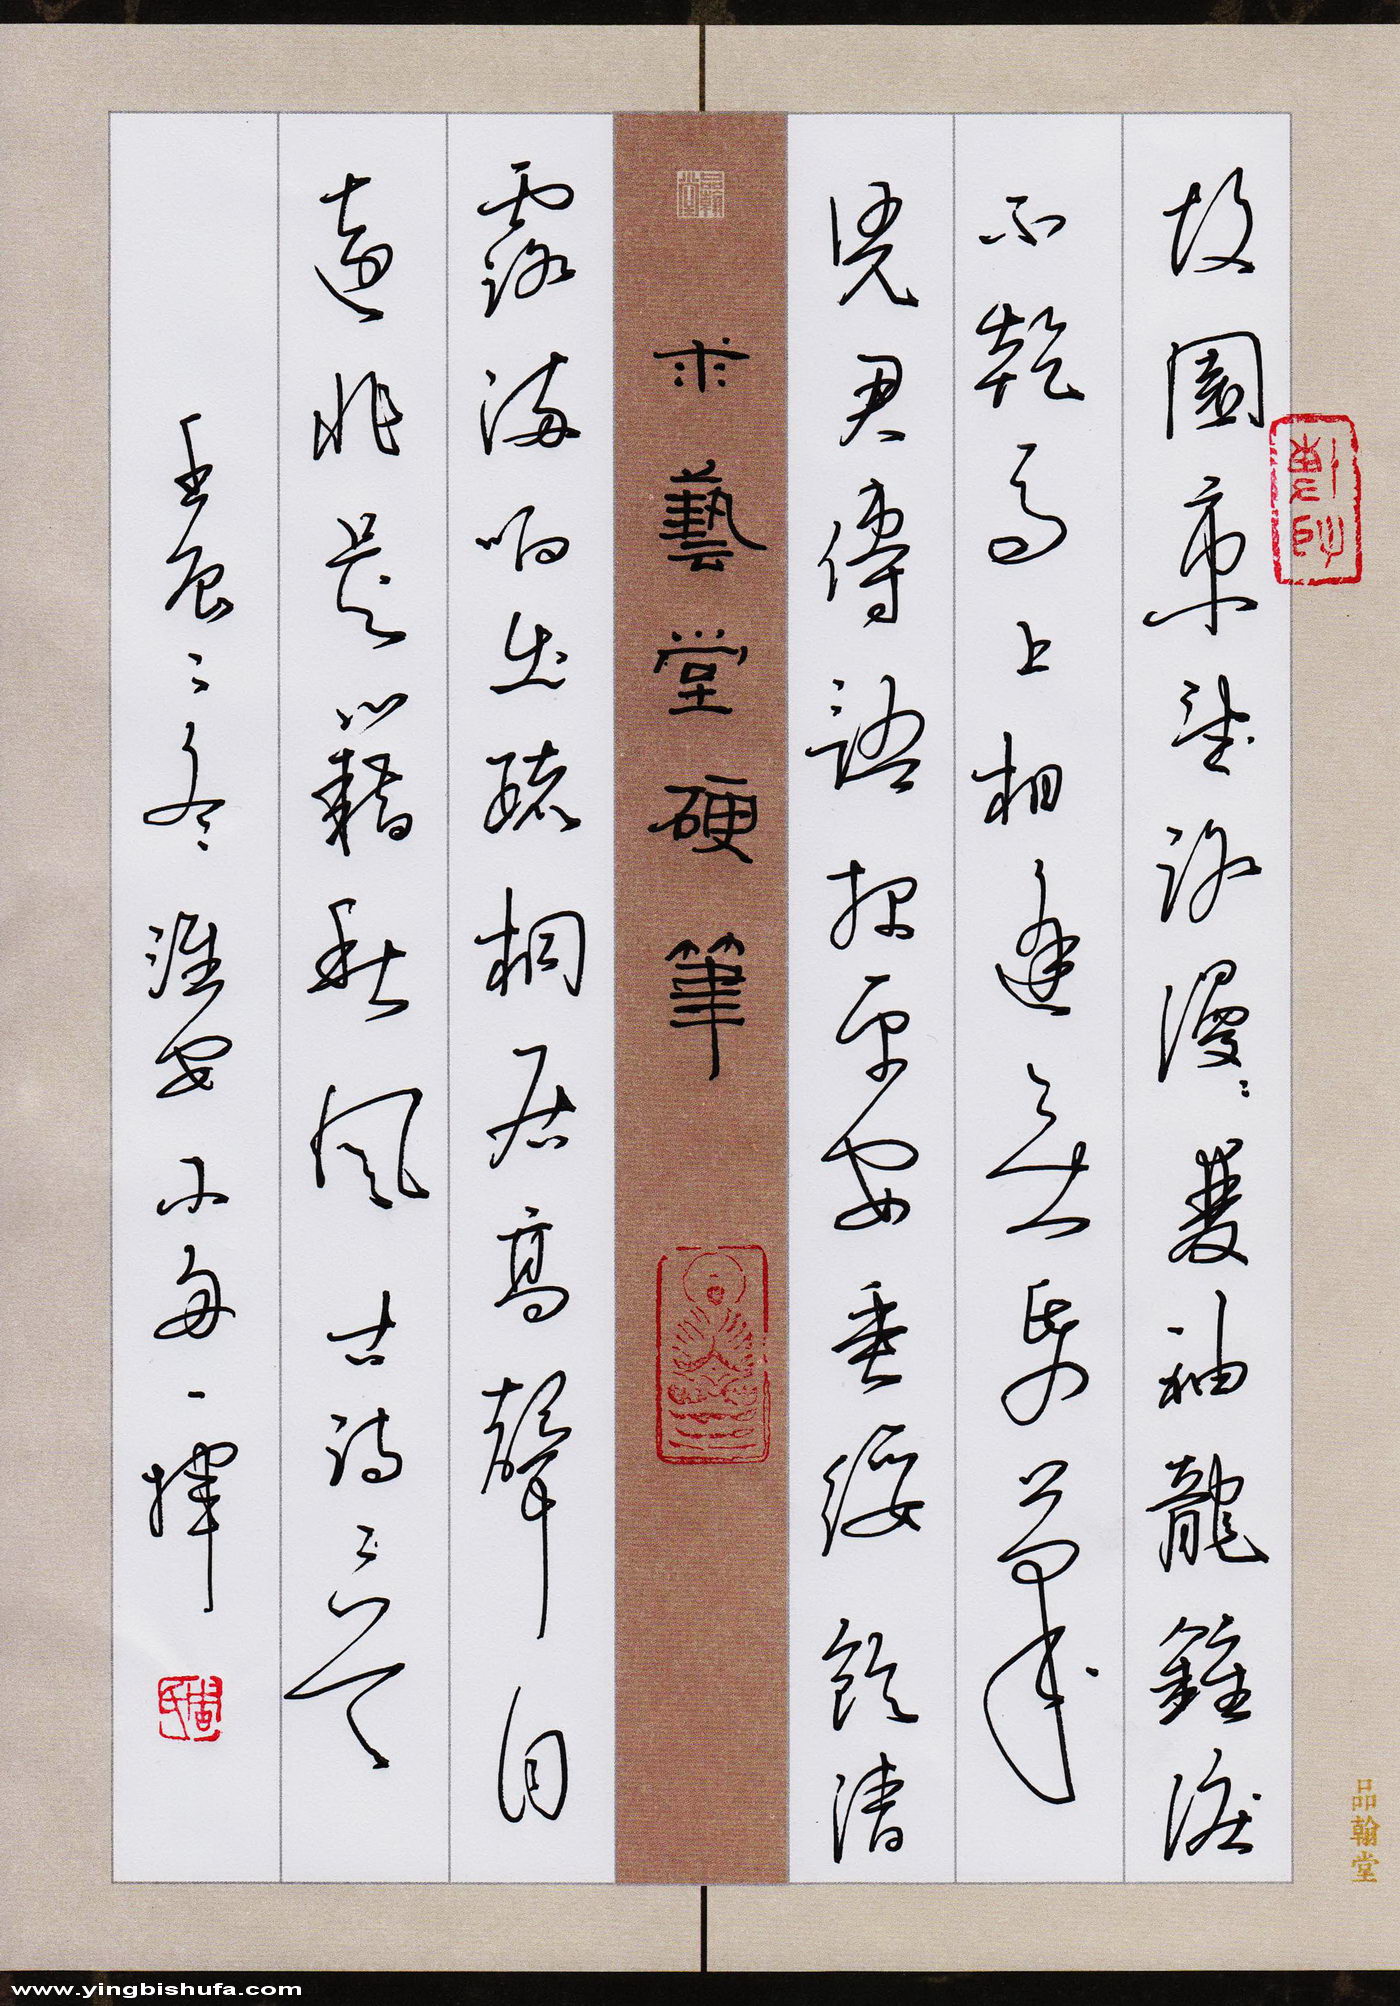 故園東望路漫漫雙袖龍鍾淚
不乾馬上相逢無紙筆
憑君傳語報平安垂緌飲清
求藝堂硬筆
露流响出疏桐居高聲自
遠非是藉秋風 古詩二首
壬辰之冬 淮安 一揮
周氏
品翰堂
www.yingbishufa.com